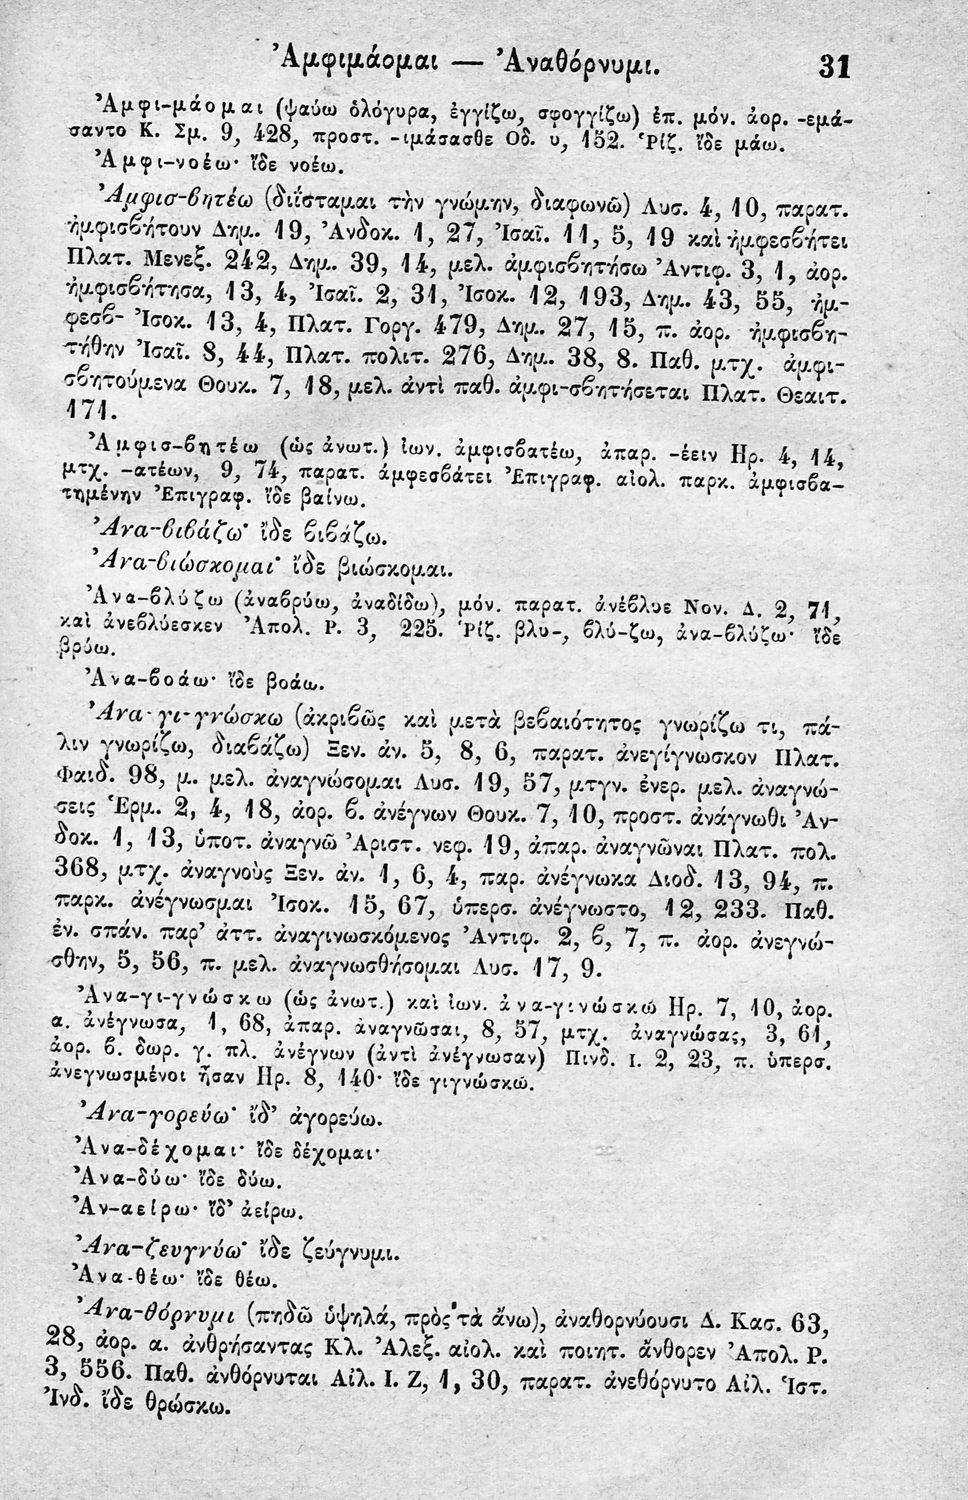 Ἀμφιμάομαι — Ἀναθόρνυμι. 31
Ἀμφι-μάομαι (ψαύω ὁλόγυρα, ἐγγίζω, σφογγίζω) ἐπ. μόν. ἀορ. -εμά-
σαντο Κ. Σμ. 9, 428, προστ. -ιμάσασθε Οδ. υ, 152. Ῥίζ. ἴδε μάω.
Ἀμφι-νοέω· ἴδε νοέω.
Ἀμφισ-βητέω (διΐσταμαι τὴν γνώμην, διαφωνῶ) Λυσ. 4, 10, παρατ.
ἠμφισβήτουν Δημ. 19, Ἀνδοκ. 1, 27, Ἰσαῖ. 11, 5, 19 καὶ ἠμφεσβήτει
Πλατ. Μενεξ. 242, Δημ. 39, 14, μελ. ἀμφισβητήσω Ἀντιφ. 3, 1, ἀορ.
ἠμφισβήτησα, 13, 4, Ἰσαῖ. 2, 31, Ἰσοκ. 12, 193, Δημ. 43, 55, ἠμ-
φεσβ- Ἰσοκ. 13, 4, Πλατ. Γοργ. 479, Δημ. 27, 15, π. ἀορ. ἠμφισβη-
τήθην Ἰσαῖ. 8, 44, Πλατ. πολιτ. 276, Δημ. 38, 8. Παθ. μτχ. ἀμφι-
σβητούμενα Θουκ. 7, 18, μελ. ἀντὶ παθ. ἀμφι-σβητήσεται Πλατ. Θεαιτ.
171.
Ἀμφισ-βητέω (ὡς ἀνωτ.) ἰων. ἀμφισβατέω, ἀπαρ. -έειν Ηρ. 4, 14,
μτχ. -ατέων, 9, 74, παρατ. ἀμφεσβάτει Ἐπιγραφ. αἰολ. παρκ. ἀμφισβα-
τημένην Ἐπιγραφ. ἴδε βαίνω.
Ἀνα-βιβάζω· ἴδε βιβάζω.
Ἀνα-βιώσκομαι· ἴδε βιώσκομαι.
Ἀνα-βλύζω (ἀναβρύω, ἀναδίδω), μόν. παρατ. ἀνέβλυε Νον. Δ. 2, 71,
καὶ ἀνεβλύεσκεν Ἀπολ. Ρ. 3, 225. Ῥίζ. βλυ-, βλύ-ζω, ἀνα-βλύζω· ἴδε
βρύω.
Ἀνα-βοάω· ἴδε βοάω.
Ἀνα-γι-γνώσκω (ἀκριβῶς καὶ μετὰ βεβαιότητος γνωρίζω τι, πά-
λιν γνωρίζω, διαβάζω) Ξεν. ἀν. 5, 8, 6, παρατ. ἀνεγίγνωσκον Πλατ.
Φαιδ. 98, μ. μελ. ἀναγνώσομαι Λυσ. 19, 57, μτγν. ἐνερ. μελ. ἀναγνώ-
σεις Ἑρμ. 2, 4, 18, ἀορ. β. ἀνέγνων Θουκ. 7, 10, προστ. ἀνάγνωθι Ἀν-
δοκ. 1, 13, ὑποτ. ἀναγνῶ Ἀριστ. νεφ. 19, ἀπαρ. ἀναγνῶναι Πλατ. πολ.
368, μτχ. ἀναγνοὺς Ξεν. ἀν. 1, 6, 4, παρ. ἀνέγνωκα Διοδ. 13, 94, π.
παρκ. ἀνέγνωσμαι Ἰσοκ. 15, 67, ὑπερσ. ἀνέγνωστο, 12, 233. Παθ.
ἐν. σπάν. παρ' ἀττ. ἀναγινωσκόμενος Ἀντιφ. 2, β, 7, π. ἀορ. ἀνεγνώ-
σθην, 5, 56, π. μελ. ἀναγνωσθήσομαι Λυσ. 17, 9.
Ἀνα-γι-γνώσκω (ὡς ἀνωτ.) καὶ ἰων. ἀνα-γινώσκω Ηρ. 7, 10, ἀορ.
α. ἀνέγνωσα, 1, 68, ἀπαρ. ἀναγνῶσαι, 8, 57, μτχ. ἀναγνώσας, 3, 61,
ἀορ. β. δωρ. γ. πλ. ἀνέγνων (ἀντὶ ἀνέγνωσαν) Πινδ. Ι. 2, 23, π. ὑπερσ.
ἀνεγνωσμένοι ἦσαν Ηρ. 8, 140· ἴδε γιγνώσκω.
Ἀνα-γορεύω· ἴδ' ἀγορεύω.
Ἀνα-δέχομαι· ἴδε δέχομαι·
Ἀνα-δύω· ἴδε δύω.
Ἀν-αείρω· ἴδ' ἀείρω.
Ἀνα-ζευγνύω· ἴδε ζεύγνυμι.
Ἀνα-θέω· ἴδε θέω.
Ἀνα-θόρνυμι (πηδῶ ὑψηλά, πρὸς τὰ ἄνω), ἀναθορνύουσι Δ. Κασ. 63,
28, ἀορ. α. ἀνθρήσαντας Κλ. Ἀλεξ. αἰολ. καὶ ποιητ. ἄνθορεν Ἀπολ. Ρ.
3, 556. Παθ. ἀνθόρνυται Αἰλ. Ι. Ζ, 1, 30, παρατ. ἀνεθόρνυτο Αἰλ. Ἱστ.
Ἰνδ. ἴδε θρώσκω.